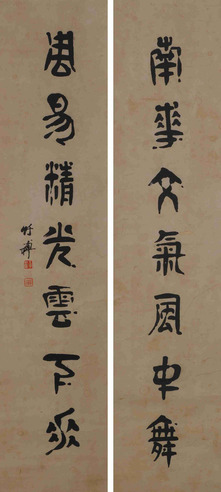 南華文氣風中舞
周易精光雲下飛